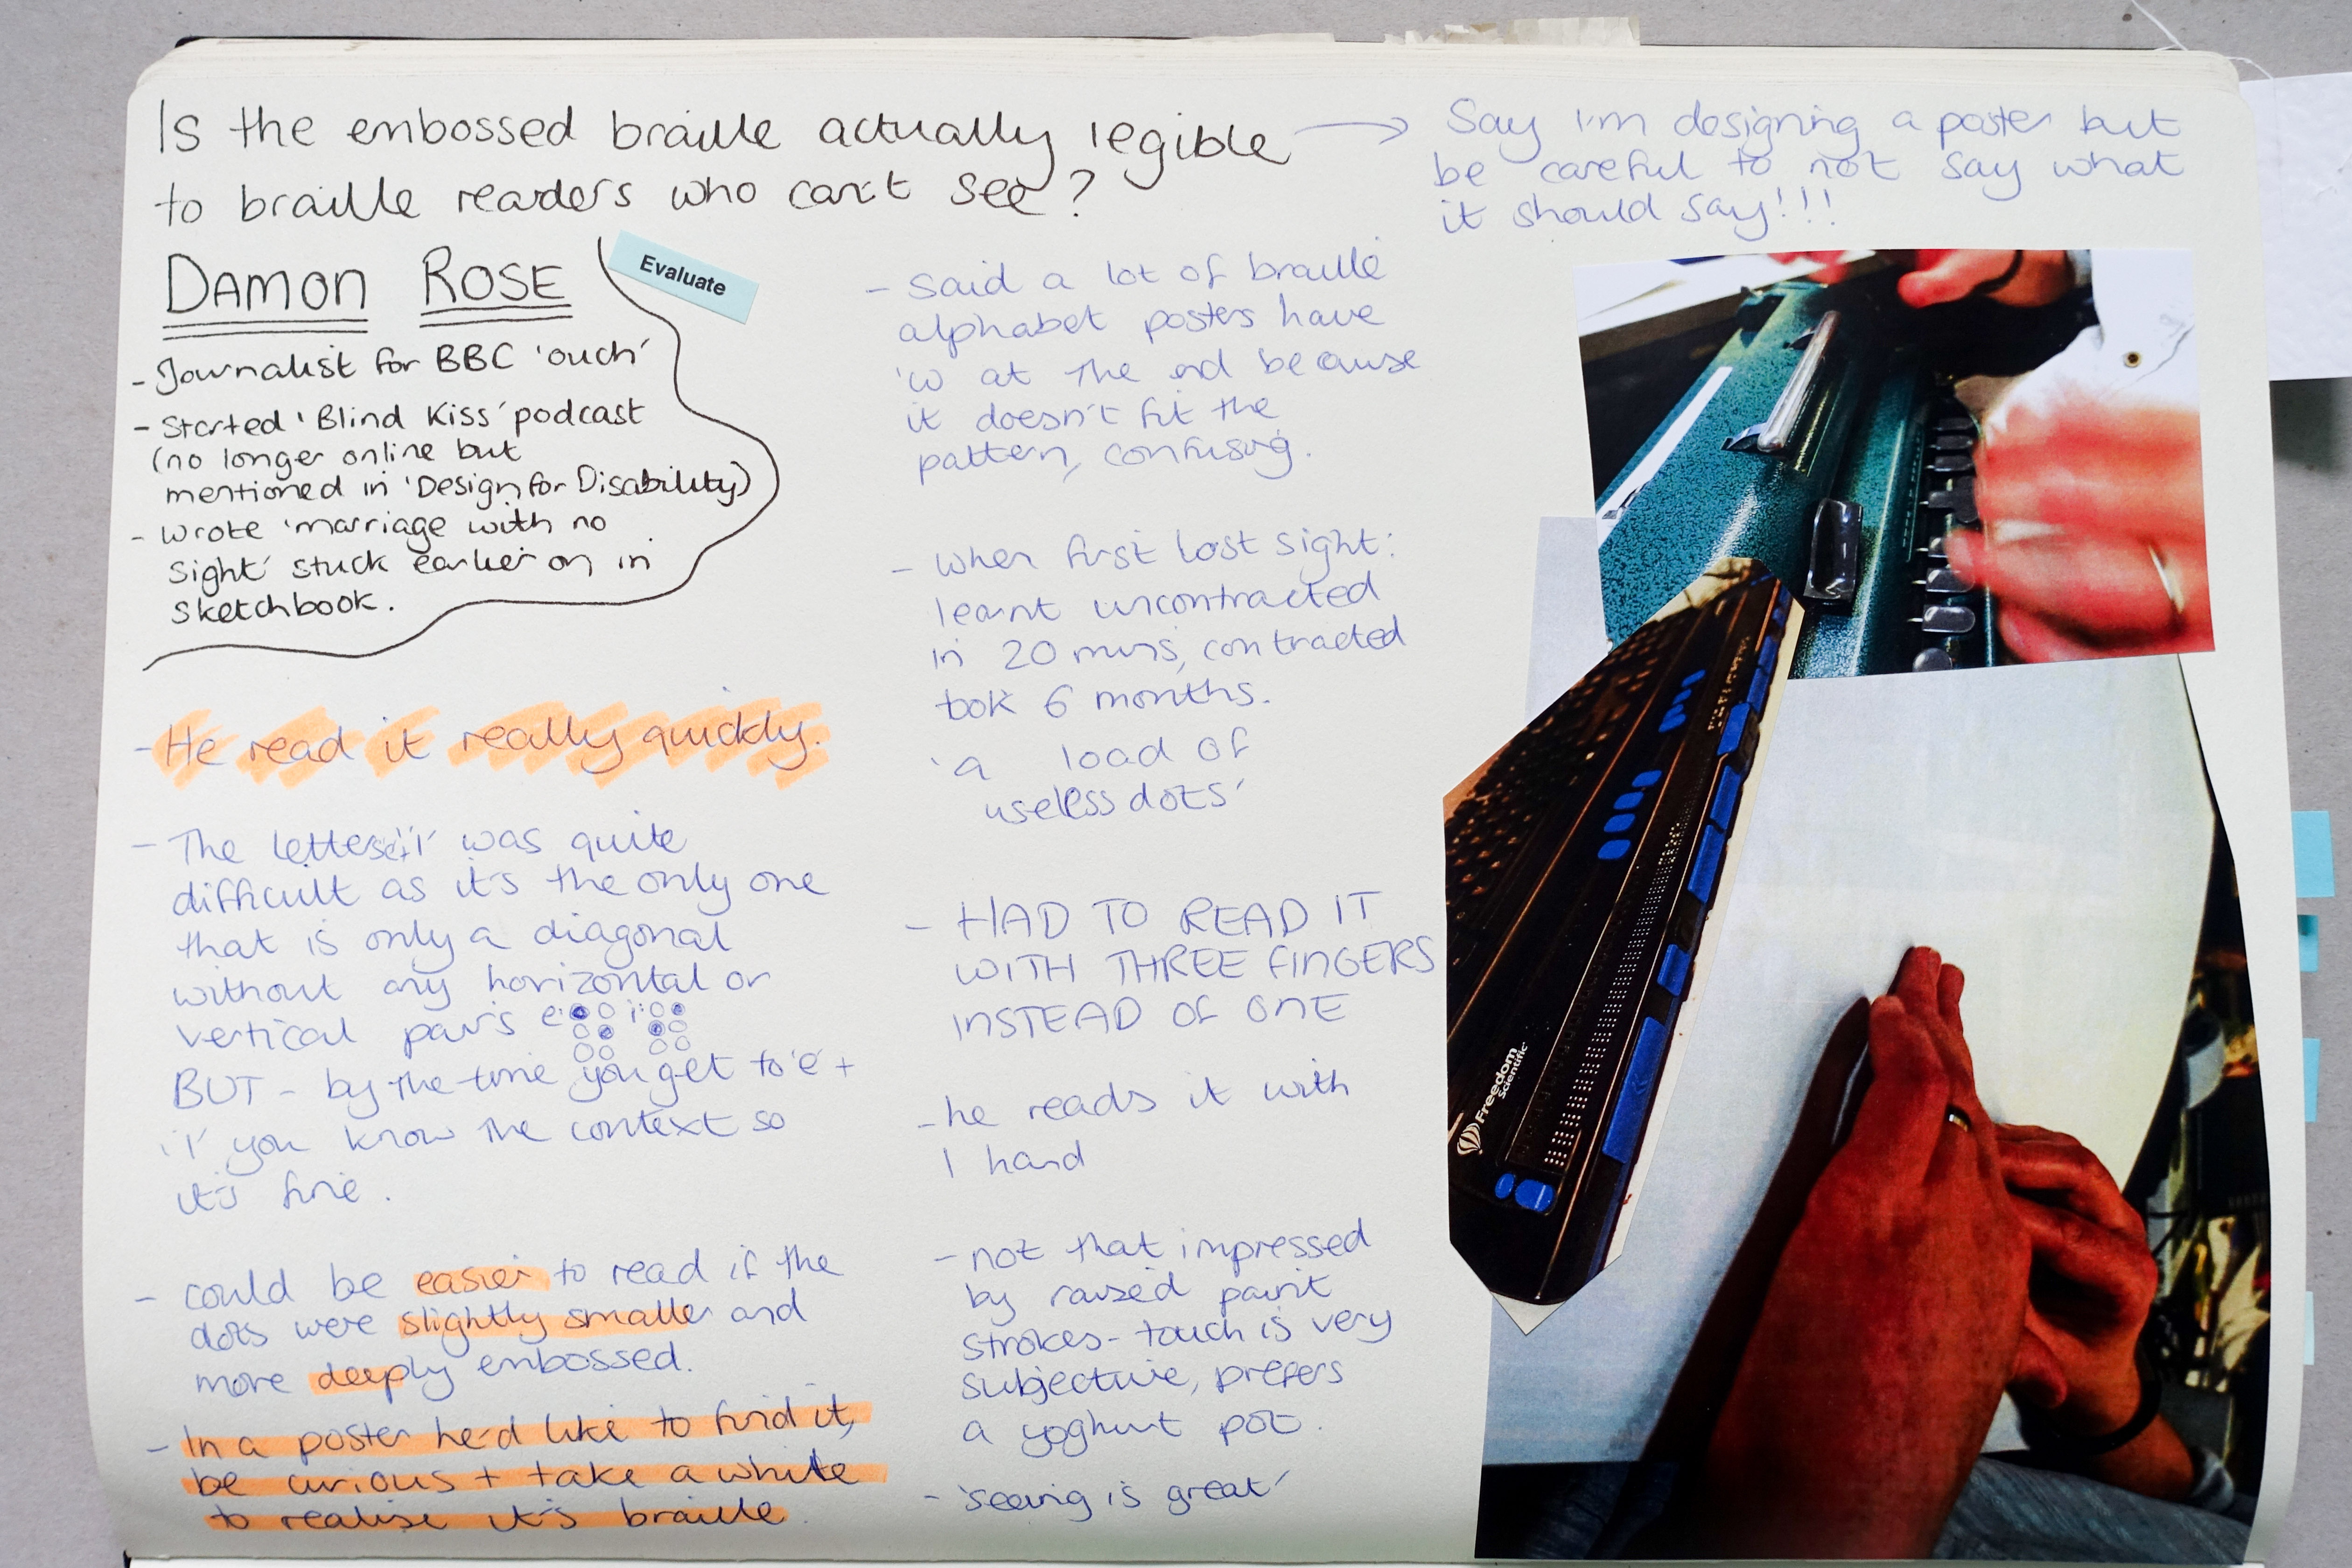 Is the embossed braille actually legible
to braille readers who can't see?
Say I'm designing a poster but
be careful to not say what
it should say!!!
DAMON ROSE
Evaluate
- Journalist for BBC 'ouch'
- Started 'Blind Kiss' podcast
(no longer online but
mentioned in 'Design for Disability)
- wrote 'marriage with no
sight' stuck earlier on in
sketchbook.
- He read it really quickly.
- The letters 'e'+'i' was quite
difficult as it's the only one
that is only a diagonal
without any horizontal or
vertical pairs e: i:
BUT - by the time you get to 'e' +
'i' you know the context so
it's fine.
- could be easier to read if the
dots were slightly smaller and
more deeply embossed.
- In a poster he'd like to find it,
be curious + take a while
to realise it's braille.
- Said a lot of braille
alphabet posters have
'w at the end because
it doesn't fit the
pattern, confusing.
- when first lost sight:
learnt uncontracted
in 20 mins, contracted
took 6 months.
'a load of
useless dots'
- HAD TO READ IT
WITH THREE FINGERS
INSTEAD OF ONE
- he reads it with
1 hand
- not that impressed
by raised paint
strokes - touch is very
subjective, prefers
a yoghurt pot.
- 'seeing is great'
Freedom
Scientific